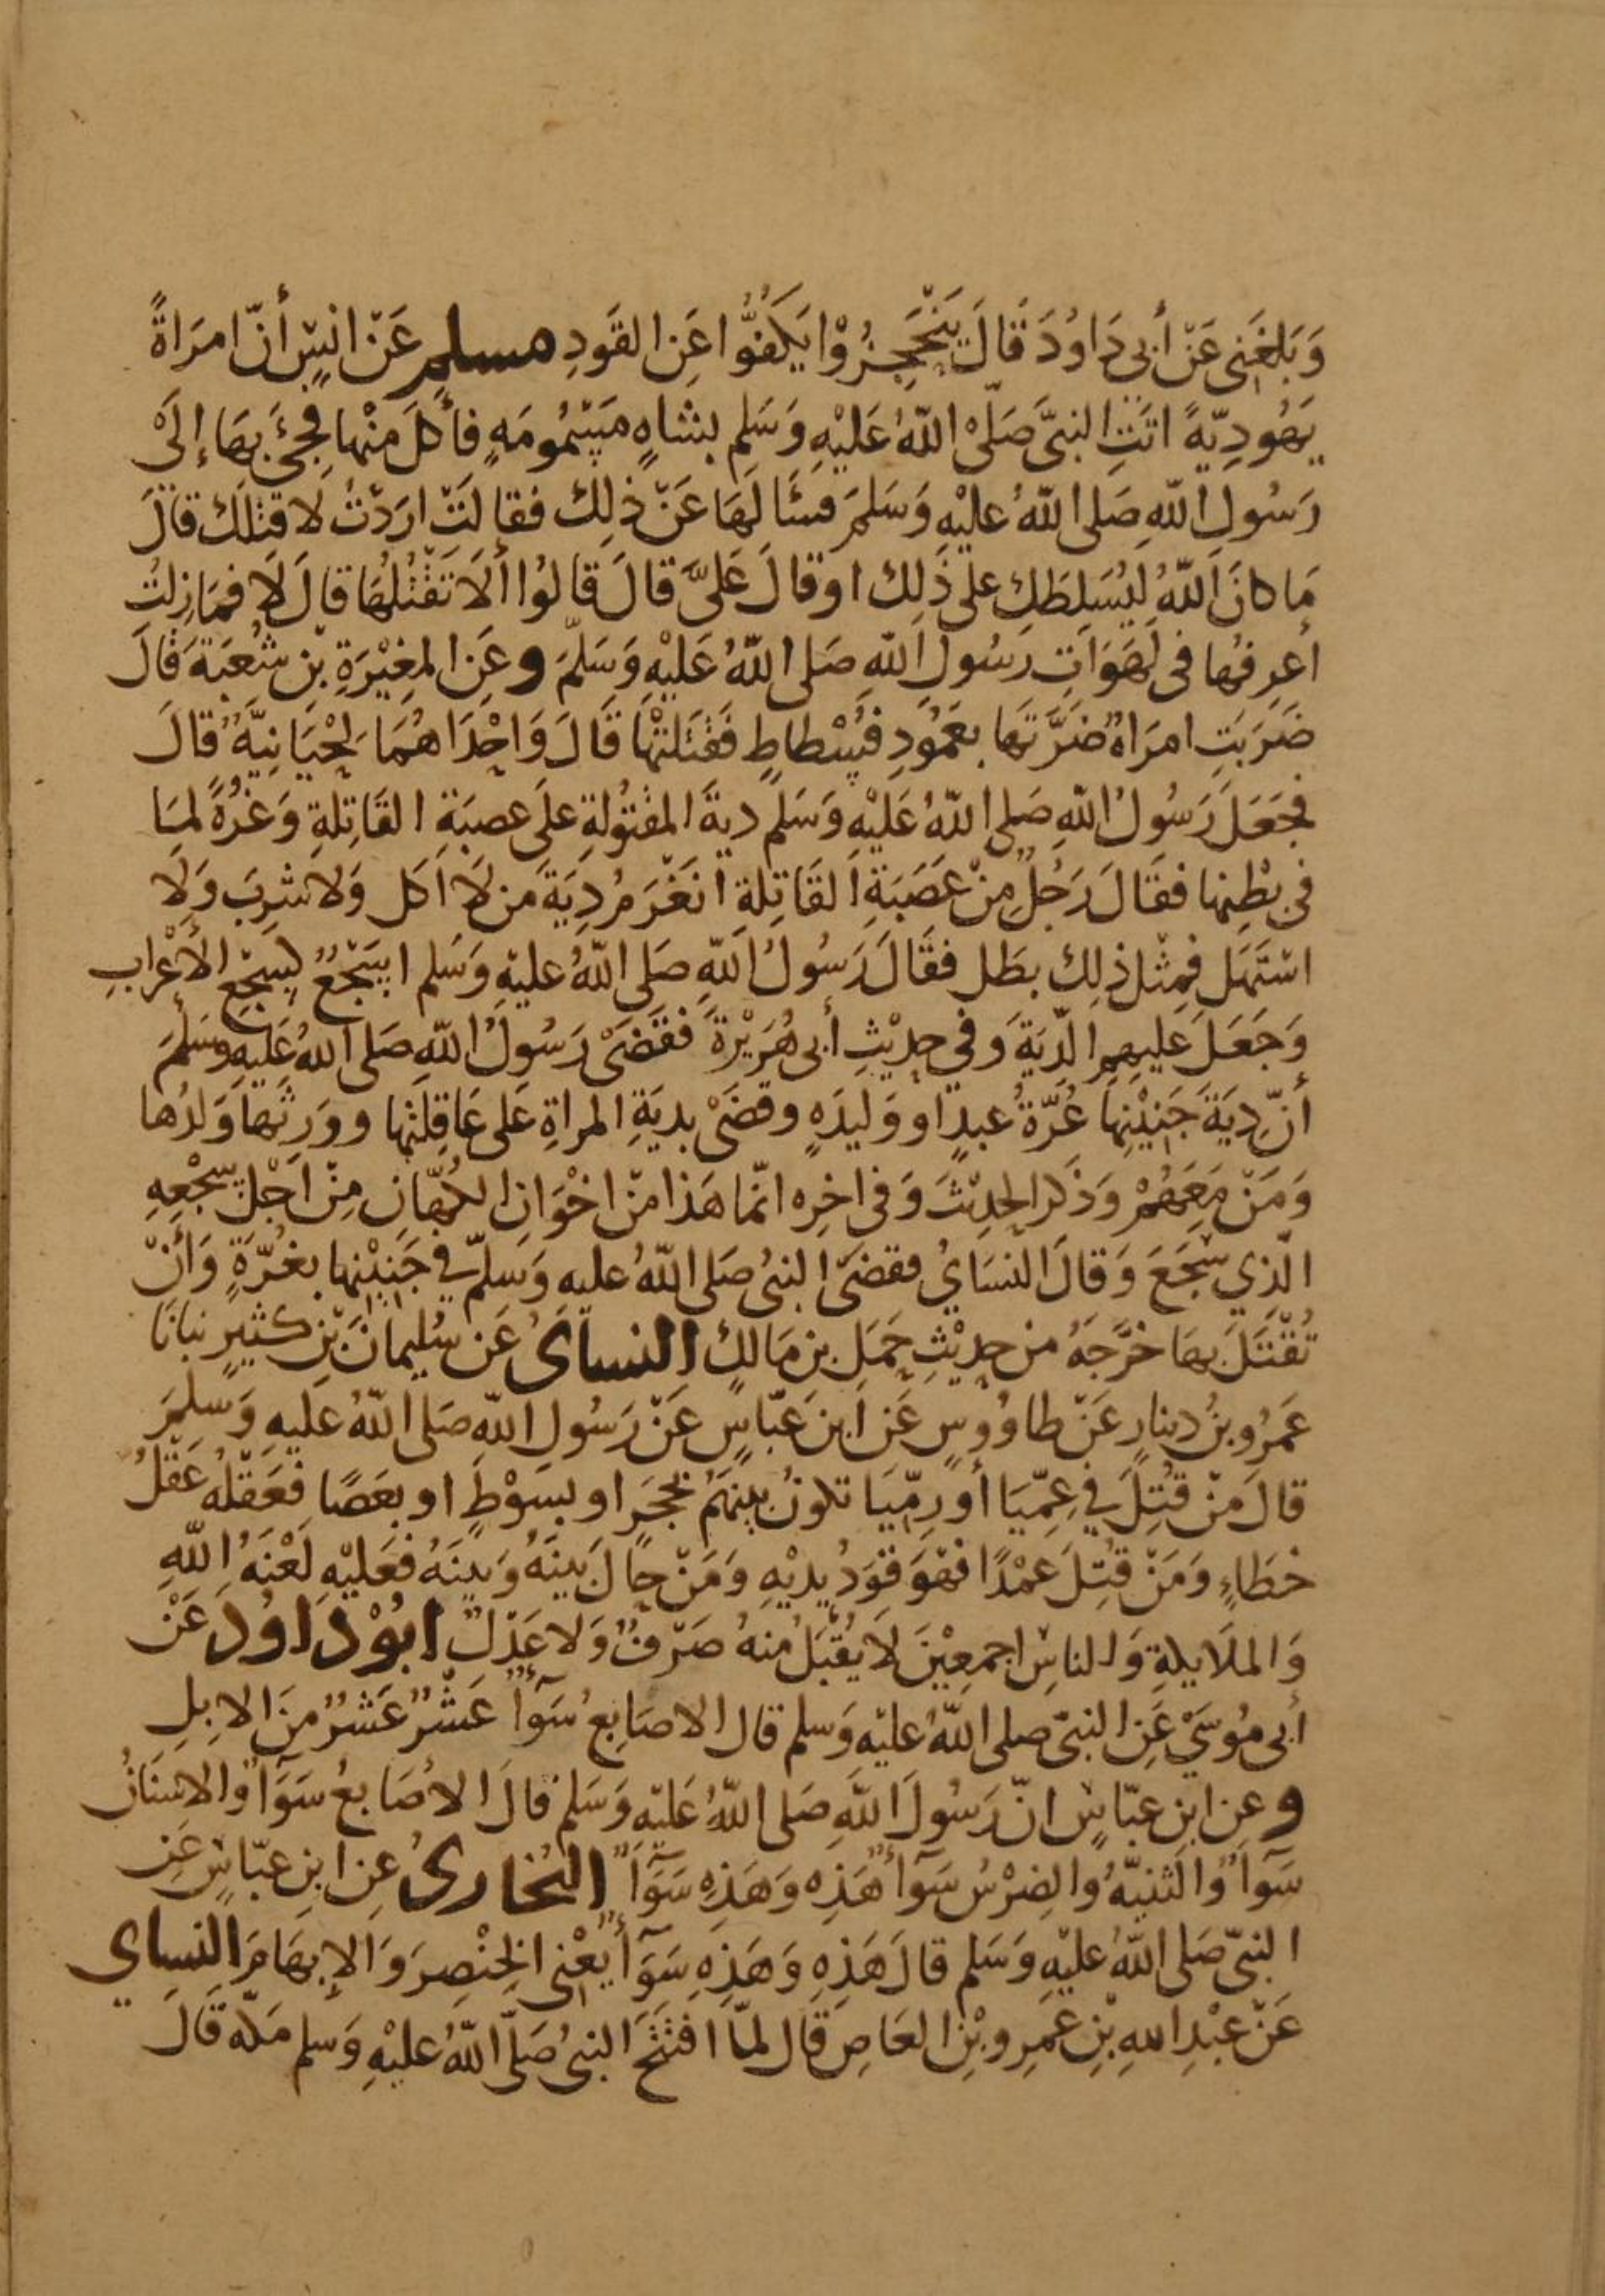 وَبَلغَنِى عَنْ أَبِى دَاوُدَ قَالَ يَنْحَجِزُوْا يَكُفُّوا عَنِ القَوَدِ مسلم عَنْ انَسٍ أنّ امرَاةً
يَهُودِيّةً اتَتِ النبىَّ صَلّى اللّهُ عَليْهِ وَسَلم بشاهٍ مَسْمُومَهٍ فأكَلَ مِنْها فجىَٔ بهَا إلَىْ
رَسُولِ اللّهِ صَلى اللّهُ عليْهِ وَسَلمَ فسَٔا لَهَا عَنْ ذلِك فقالَتْ ارَدْتُ لاقتلَك قالَ
مَا كانَ اللّهُ ليُسَلِطَكِ على ذلِك اوقالَ عَلىَّ قالَ قالُوا ألاَ تَقْتُلُهَا قالَ لَا فمَا زِلتُ
أعرِفُها فى لَهَوَاتِ رَسُولِ اللّهِ صَلى اللّهُ عَليْهِ وَسَلّمَ وعَنِ المغِيْرَةِ بْنِ شُعبَةَ قَالَ
ضَرَبَتِ امرَاةٌ ضَرَّتَها بعَمُودِ فُسْطاطٍ فَقتَلتْهَا قَالَ وَاحْدَاهُمَا لِحْيَانِيَّةٌ قالَ
فجَعَلَ رَسُولُ اللّهِ صَلى اللّهُ عَليْهِ وَسَلم ديةَ المقتُولةِ علَى عصبَةِ القَاتِلةِ وَغرُةً لمِا
فى بطْنِها فقَالَ رَجُلٌ مِنْ عَصَبَةِ القَاتِلةِ انَغْرَمُ دِيَةَ مَن لَا اكَل وَلا شرِبَ وَلا
اسْتَهَل فمِثلُ ذلِك بطَل فقَالَ رَسُولُ اللّهِ صَلى اللّهُ عليْهِ وَسَلم اسَجْعٌ كسَجْعِ الأعْرَابِ
وَجَعَلَ عَليهِمِ الدّيَةَ وَفى حدِيْثِ أبى هُرَيْرةَ فقَضَىْ رَسُولُ اللّهِ صَلى اللهُ عَليَهِ وسَلمَ
أنّ دِيَةَ جَنِيْنِهَا غُرّةُ عبدٍ او وَليدَهٍ وقضَىْ بديَةِ المراةِ عَلى عَاقِلتِها ووَرِثها وَلدُها
وَمَنْ مَعَهُمْ وَذكَر الحدِيْثَ وَفى اخِرِه انّما هَذا منْ اخْوَانِ الكُهّانِ مِنْ اجْل سَجْعِهِ
الّذِي سَجَعَ وَقالَ النسَايُ فقضَى النبىُ صَلى اللّهُ عليه وَسَلّم في جَنِيْنِها بغُرّةٍ وَأنْ
تُقْتَلَ بهَا خرّجَهُ من حدِيْثِ حَمَلِ بن مَالكٍ النسائُ عَن سُليمانَ بْنِ كثيرٍ نبانَا
عَمرُو بنُ دينارٍ عَنْ طاوُوسٍ عَنِ ابنِ عَبّاسٍ عَنْ رَسُولِ اللّه صَلى اللّهُ عَليهِ وَسلمَ
قالَ مَنْ قُتِلَ في عِمِّيَا أو رِمِّيَا تكونُ بينَهُمْ بحَجَرٍ او بسوْطٍ او بعَصًا فعَقْلهُ عَقْلُ
خطَاءٍ وَمَنْ قُتِلَ عمْدًا فهْوَ قوَدُ يديْهِ وَمَنْ حَالَ بينَهُ وَبينَهُ فعَليْهِ لَعْنَهُ اللّهِ
وَالملَايكةِ وَالناسِ اجمعِيْنَ لاَ يُقْبَلُ منهُ صَرْفٌ وَلا عَدْلٌ ابُوْ دَاوُدَ عَنْ
أبى مُوسَيْ عَنِ النبىّ صلى اللّهُ عليْهِ وَسلم قال الاصَابِعُ سَوَآءٌ عَشْرٌ عَشْرٌ مِنَ الابِلِ
وعنِ ابن عبّاسٍ انّ رَسُولَ اللّهِ صَلى اللّهُ عَليْهِ وَسَلم قالَ الاصَابعُ سَوَآءٌ والاسْنَانُ
سَوآءٌ والثنيَّهُ والضِرْسُ سَوآءٌ هَذِه وَهَذِهِ سَوَآءٌ البُخارىُ عنِ ابنِ عبّاسٍ عَنِ
النبىّ صَلى اللّهُ عليْهِ وَسَلم قالَ هَذِهِ وَهَذِهِ سَوَآءٌ يعْنِى الخِنْصِرَ وَالإبهَامَ النسِاي
عَنْ عبْدِ اللهِ بْنِ عَمرِو بْنِ العَاصِ قال لمّا افتَتَحَ النبىُ صَلّى اللّهُ عليْهِ وَسلم مَكّه قالَ